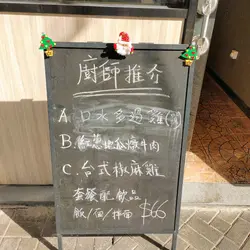 廚師推介
A 口水多過雞(飯)
B. 紅蔥地瓜燉牛肉
C. 台式椒麻雞
套餐配飲品
飯/面/拌面 $66